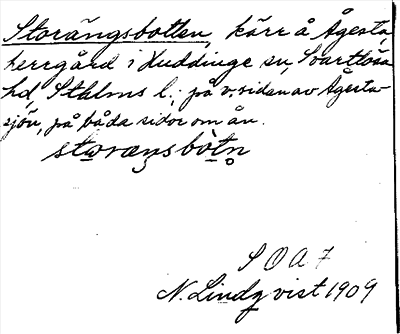 Storängsbotten, kärr å Ågesta
herrgård i Huddinge sn, Svartlösa
hd, Sthlms l.; på v. sidan av Ågesta-
sjön, på båda sidor om ån.
storæŋsbòtn̥
S O A 7
N. Lindqvist 1909